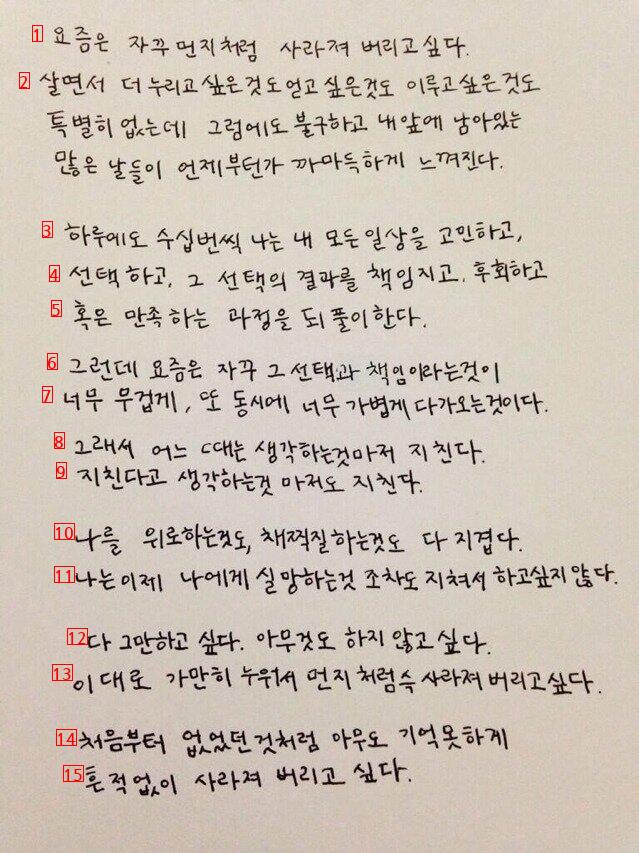 1 요즘은 자꾸 먼지처럼 사라져 버리고 싶다.
2 살면서 더 누리고 싶은것도 얻고 싶은것도 이루고 싶은것도
특별히 없는데 그럼에도 불구하고 내 앞에 남아있는
많은 날들이 언제부턴가 까마득하게 느껴진다.
3 하루에도 수십번씩 나는 내 모든 일상을 고민하고,
4 선택하고, 그 선택의 결과를 책임지고, 후회하고
5 혹은 만족하는 과정을 되풀이한다.
6 그런데 요즘은 자꾸 그 선택과 책임이라는것이
7 너무 무겁게, 또 동시에 너무 가볍게 다가오는것이다.
8 그래서 어느 때는 생각하는것마저 지친다.
9 지친다고 생각하는것 마저도 지친다.
10 나를 위로하는것도, 채찍질하는것도 다 지겹다.
11 나는 이제 나에게 실망하는것 조차도 지쳐서 하고싶지 않다.
12 다 그만하고 싶다. 아무것도 하지 않고 싶다.
13 이대로 가만히 누워서 먼지처럼 슥 사라져 버리고 싶다.
14 처음부터 없었던 것처럼 아무도 기억못하게
15 흔적없이 사라져 버리고 싶다.